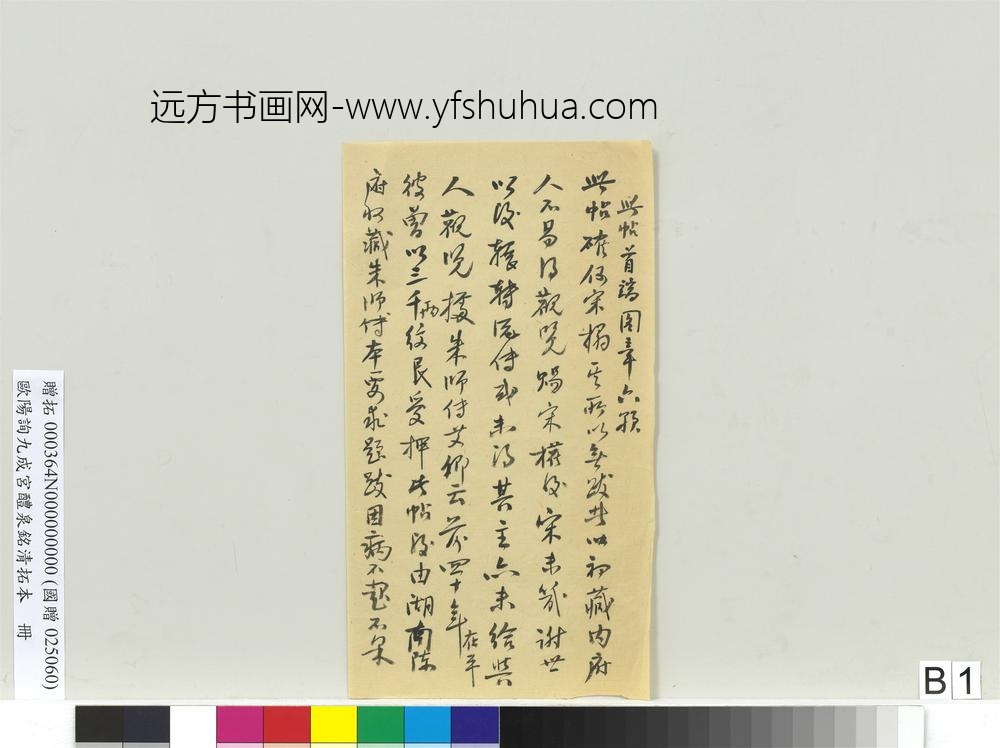 远方书画网-www.yfshuhua.com
此帖首端图章六颗
此帖確係宋榻其所以無跋者以初藏内府
人不易得觀覽賜宋權後宋未幾謝世
以後輾轉流傳或未得其主亦未給與
人觀覽據朱師傅艾卿云前四十年在平
彼曾以三千两紋艮受押此帖後由湖南陳
府收藏朱師傅本要求題跋因病不起不果
贈拓 000364N000000000 (國贈 025060)
歐陽詢九成宮醴泉銘清拓本 冊
B 1